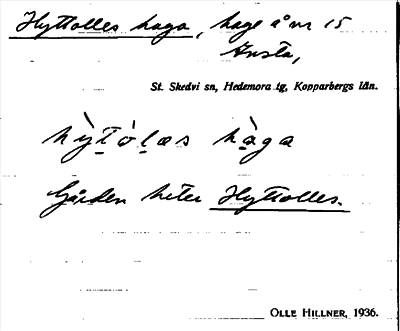 Hyttolles haga, hage å nr 15
Ansta,
St. Skedvi sn, Hedemora tg, Kopparbergs län.
hỳtòlæs hàga
Gården heter Hyttolles.
OLLE HILLNER, 1936.